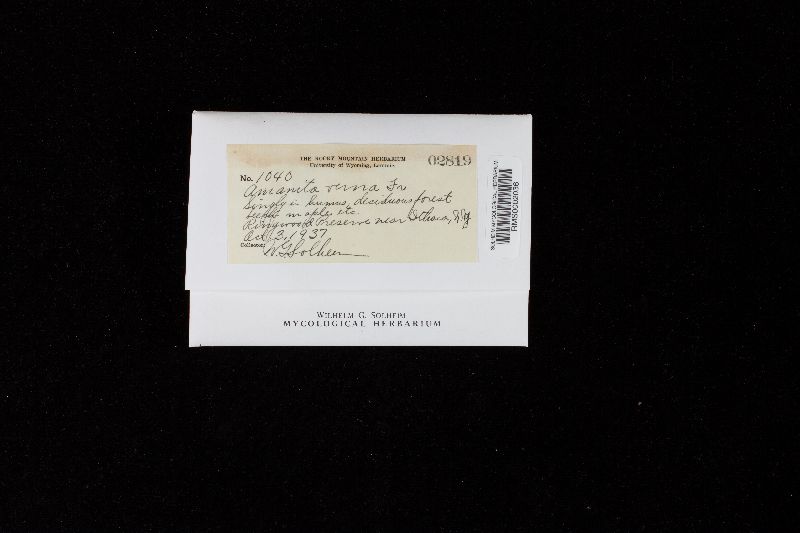 THE ROCKY MOUNTAIN HERBARIUM
University of Wyoming, Laramie
02819
No. 1040
Amanita verna Fr
Singly in humus, deciduous forest
beech maple, etc.
Ringwood Preserve near Ithaca, N.Y.
Oct. 3, 1937
Collector: W.G. Solheim
WILHELM G. SOLHEIM
MYCOLOGICAL HERBARIUM